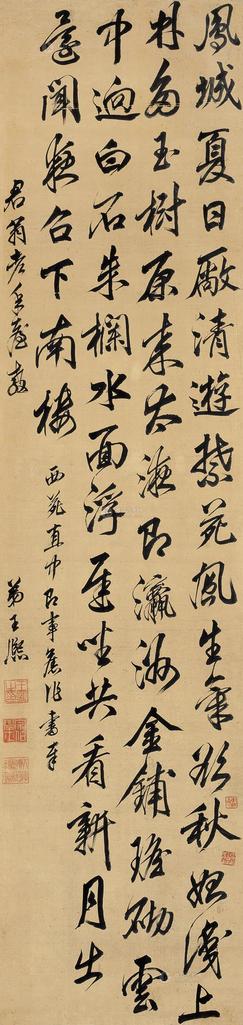 鳳城夏日敞清遊禁苑風生氣欲秋始識上
林多玉樹原來太液即瀛洲金鋪瑤砌雲
中迥白石朱欄水面浮遲坐共看新月出
聞台下南樓
西苑直中即事舊作書奉
君翁老年臺教
弟王熙